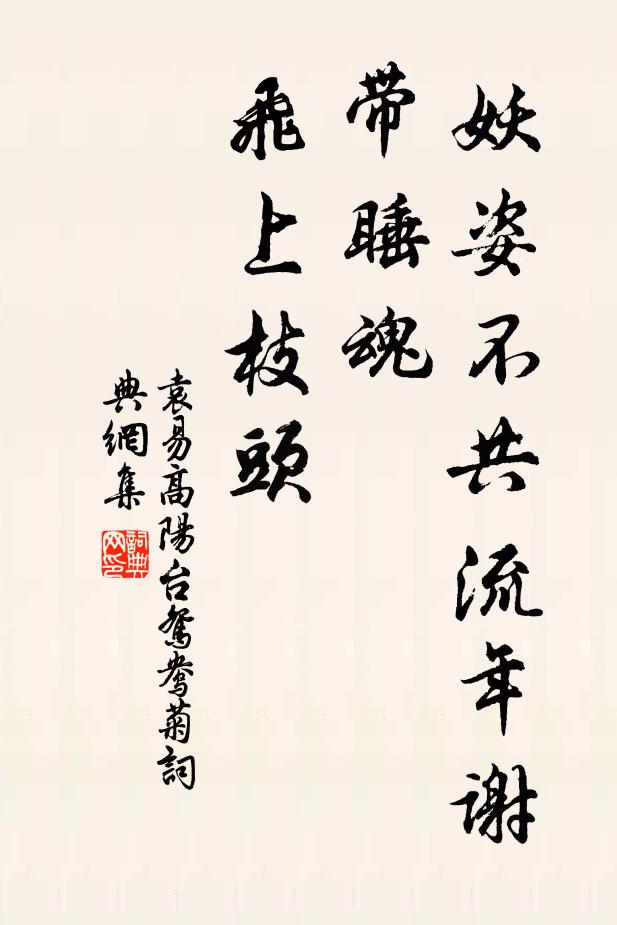 妖姿不共流年谢
带睡魂
飛上枝頭
袁易高陽台鴛鴦菊詞
典網集
詞典
网印